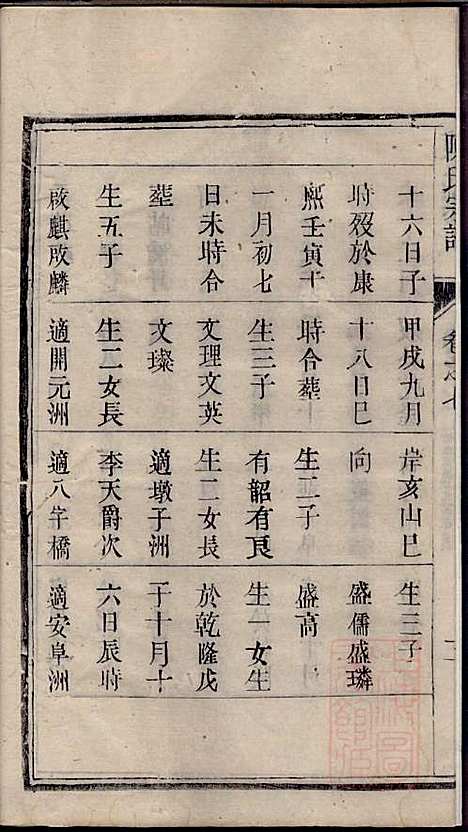 陳氏宗譜
卷之七
十六日子
時歿於康
熙壬寅十
一月初七
日未時合
塟
生五子
啟麒啟麟
甲戌九月
十八日巳
時合塟十
生三子
文理文英
文璨
生二女長
適開元洲
岸亥山巳
向
生二子
有韶有良
生二女長
適墩子洲
李天爵次
適八字橋
生三子
盛儒盛璘
盛高
生一女生
於乾隆戊
子十月十
六日辰時
適安阜洲